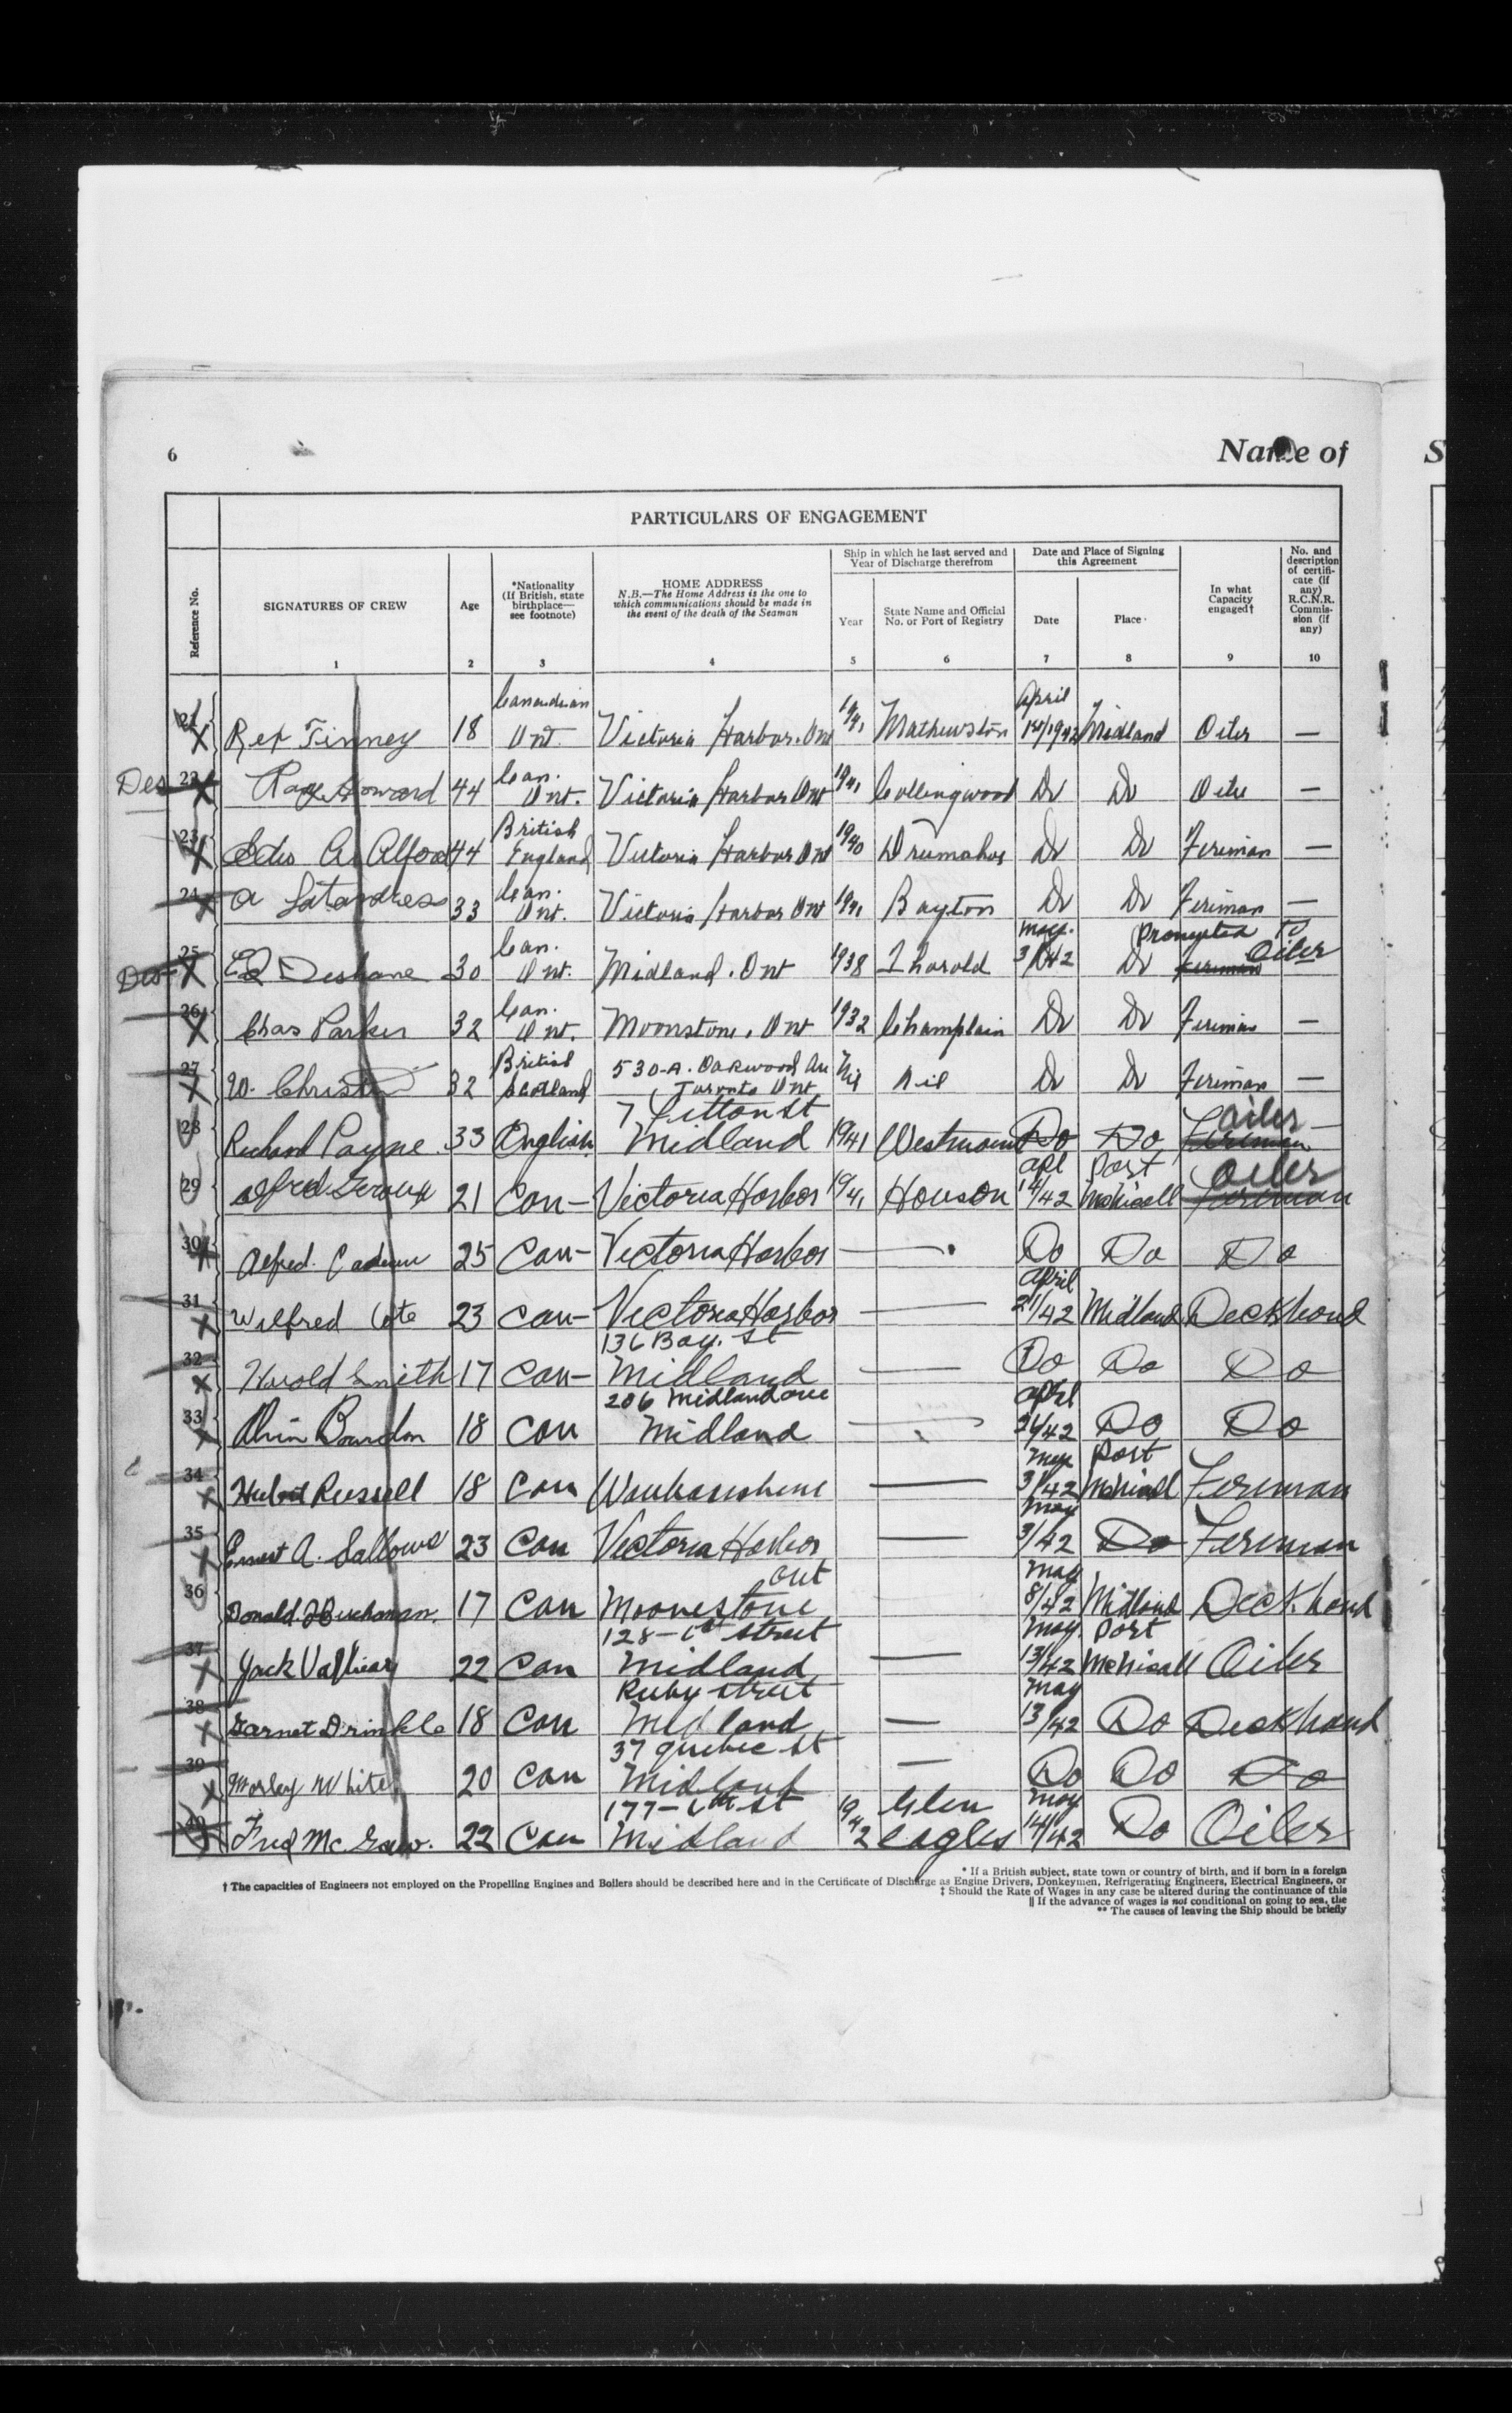 6
Name of
S
PARTICULARS OF ENGAGEMENT
Reference No.
SIGNATURES OF CREW
Age
*Nationality (If British, state birthplace— see footnote)
HOME ADDRESS
N.B.—The Home Address is the one to which communications should be made in the event of the death of the Seaman
Ship in which he last served and Year of Discharge therefrom
Year
State Name and Official No. or Port of Registry
Date and Place of Signing this Agreement
Date
Place
In what Capacity engaged†
No. and description of certificate (if any) R.C.N.R. Commission (if any)
1 2 3 4 5 6 7 8 9 10
Canadian April
21 X Rex Finney 18 Ont. Victoria Harbor. Ont 1941 Mathewston 14/1942 Midland Oiler —
Can.
Des 22 X Ray Howard 44 Ont. Victoria Harbor Ont 1941 Collingwood Do Do Oiler —
British
23 X A. Alford 44 England Victoria Harbor Ont 1940 Drumahoe Do Do Fireman —
Can.
24 X A 33 Ont. Victoria Harbor Ont 1941 Bayton Do Do Fireman —
Can. May. Promoted to
Des 25 X Ed Deshane 30 Ont. Midland. Ont 1938 Thorold 3/42 Do Fireman Oiler
Can.
26 X Chas Parker 32 Ont. Moonstone. Ont 1932 Champlain Do Do Fireman —
British 530-A. Oakwood Ave
27 X W. Christie 32 Scotland Toronto Ont Nil Nil Do Do Fireman —
7 Fitton St Oiler
28 Richard Payne 33 English Midland 1941 Westmount Do Do Fireman —
Apl Port Oiler
29 Alfred Geroux 21 Can— Victoria Harbor 1941 Houson 14/42 McNicoll Fireman
30 X Alfred Cadieux 25 Can— Victoria Harbor — Do Do Do
April
31 X Wilfred Cote 23 Can— Victoria Harbor — 21/42 Midland Deckhand
136 Bay. St
32 X Harold Smith 17 Can— Midland — Do Do Do
206 Midland ave April
33 X Alvin Bourdon 18 Can Midland — 26/42 Do Do
May Port
34 X Hubert Russell 18 Can Waubaushene — 3/42 McNicoll Fireman
May
35 X Ernest A. Sallows 23 Can Victoria Harbor — 3/42 Do Fireman
Ont May
36 Donald Buchanan. 17 Can Moonestone 8/42 Midland Deckhand
128—6th street May. Port
37 X Jack Valliear 22 Can Midland — 13/42 McNicoll Oiler
Ruby street May
38 X Garnet Drinkle 18 Can Midland — 13/42 Do Deckhand
37 Quebec St
39 X Morley White 20 Can Midland — Do Do Do
177—6th St Glen May
40 X Fred Mc.Gaw. 22 Can Midland 1942 eagles 14/42 Do Oiler
* If a British subject, state town or country of birth, and if born in a foreign
† The capacities of Engineers not employed on the Propelling Engines and Boilers should be described here and in the Certificate of Discharge as Engine Drivers, Donkeymen, Refrigerating Engineers, Electrical Engineers, or
‡ Should the Rate of Wages in any case be altered during the continuance of this
|| If the advance of wages is not conditional on going to sea, the
** The causes of leaving the Ship should be briefly